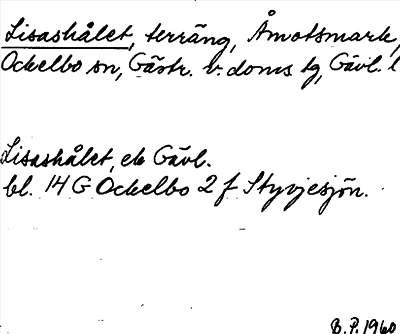 Lisashålet, terräng, Åmotsmark,
Ockelbo sn, Gästr. v. doms tg, Gävl. l
Lisashålet, ek Gävl.
bl. 14 G Ockelbo 2 f Styvjesjön.
B.P. 1960